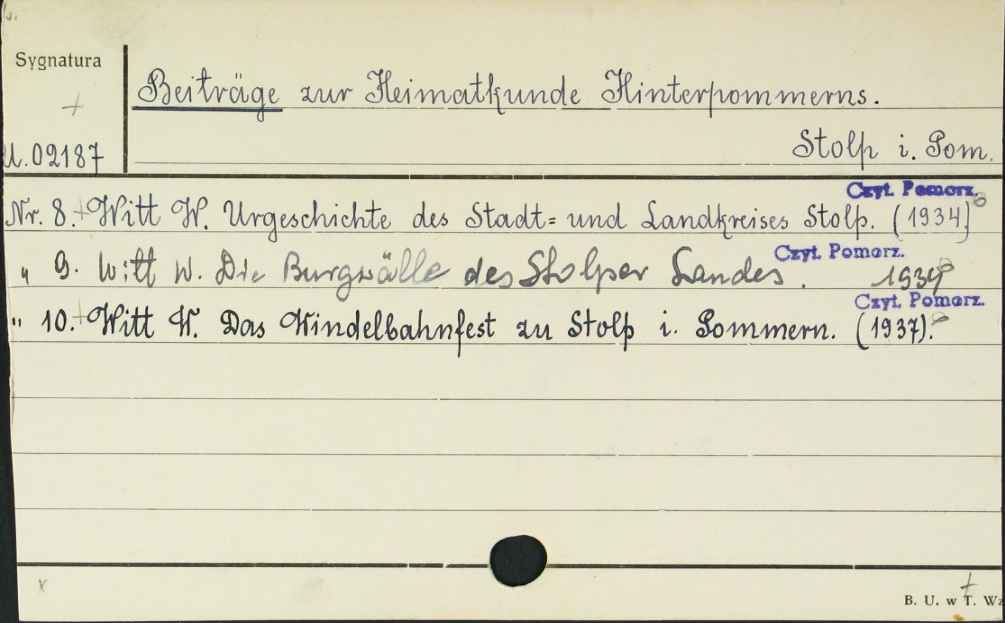 Sygnatura
+
U.02187
Beiträge zur Heimatkunde Hinterpommerns.
Stolp i. Pom.
Czyt. Pomorz.
Nr. 8.+Witt W. Urgeschichte des Stadt= und Landkreises Stolp. (1934)
Czyt. Pomorz.
„ 9. Witt W. Die Burgwälle des Stolper Landes. 1934
Czyt. Pomorz.
„ 10.+Witt W. Das Windelbahnfest zu Stolp i. Pommern. (1937).
B. U. w T. Wz